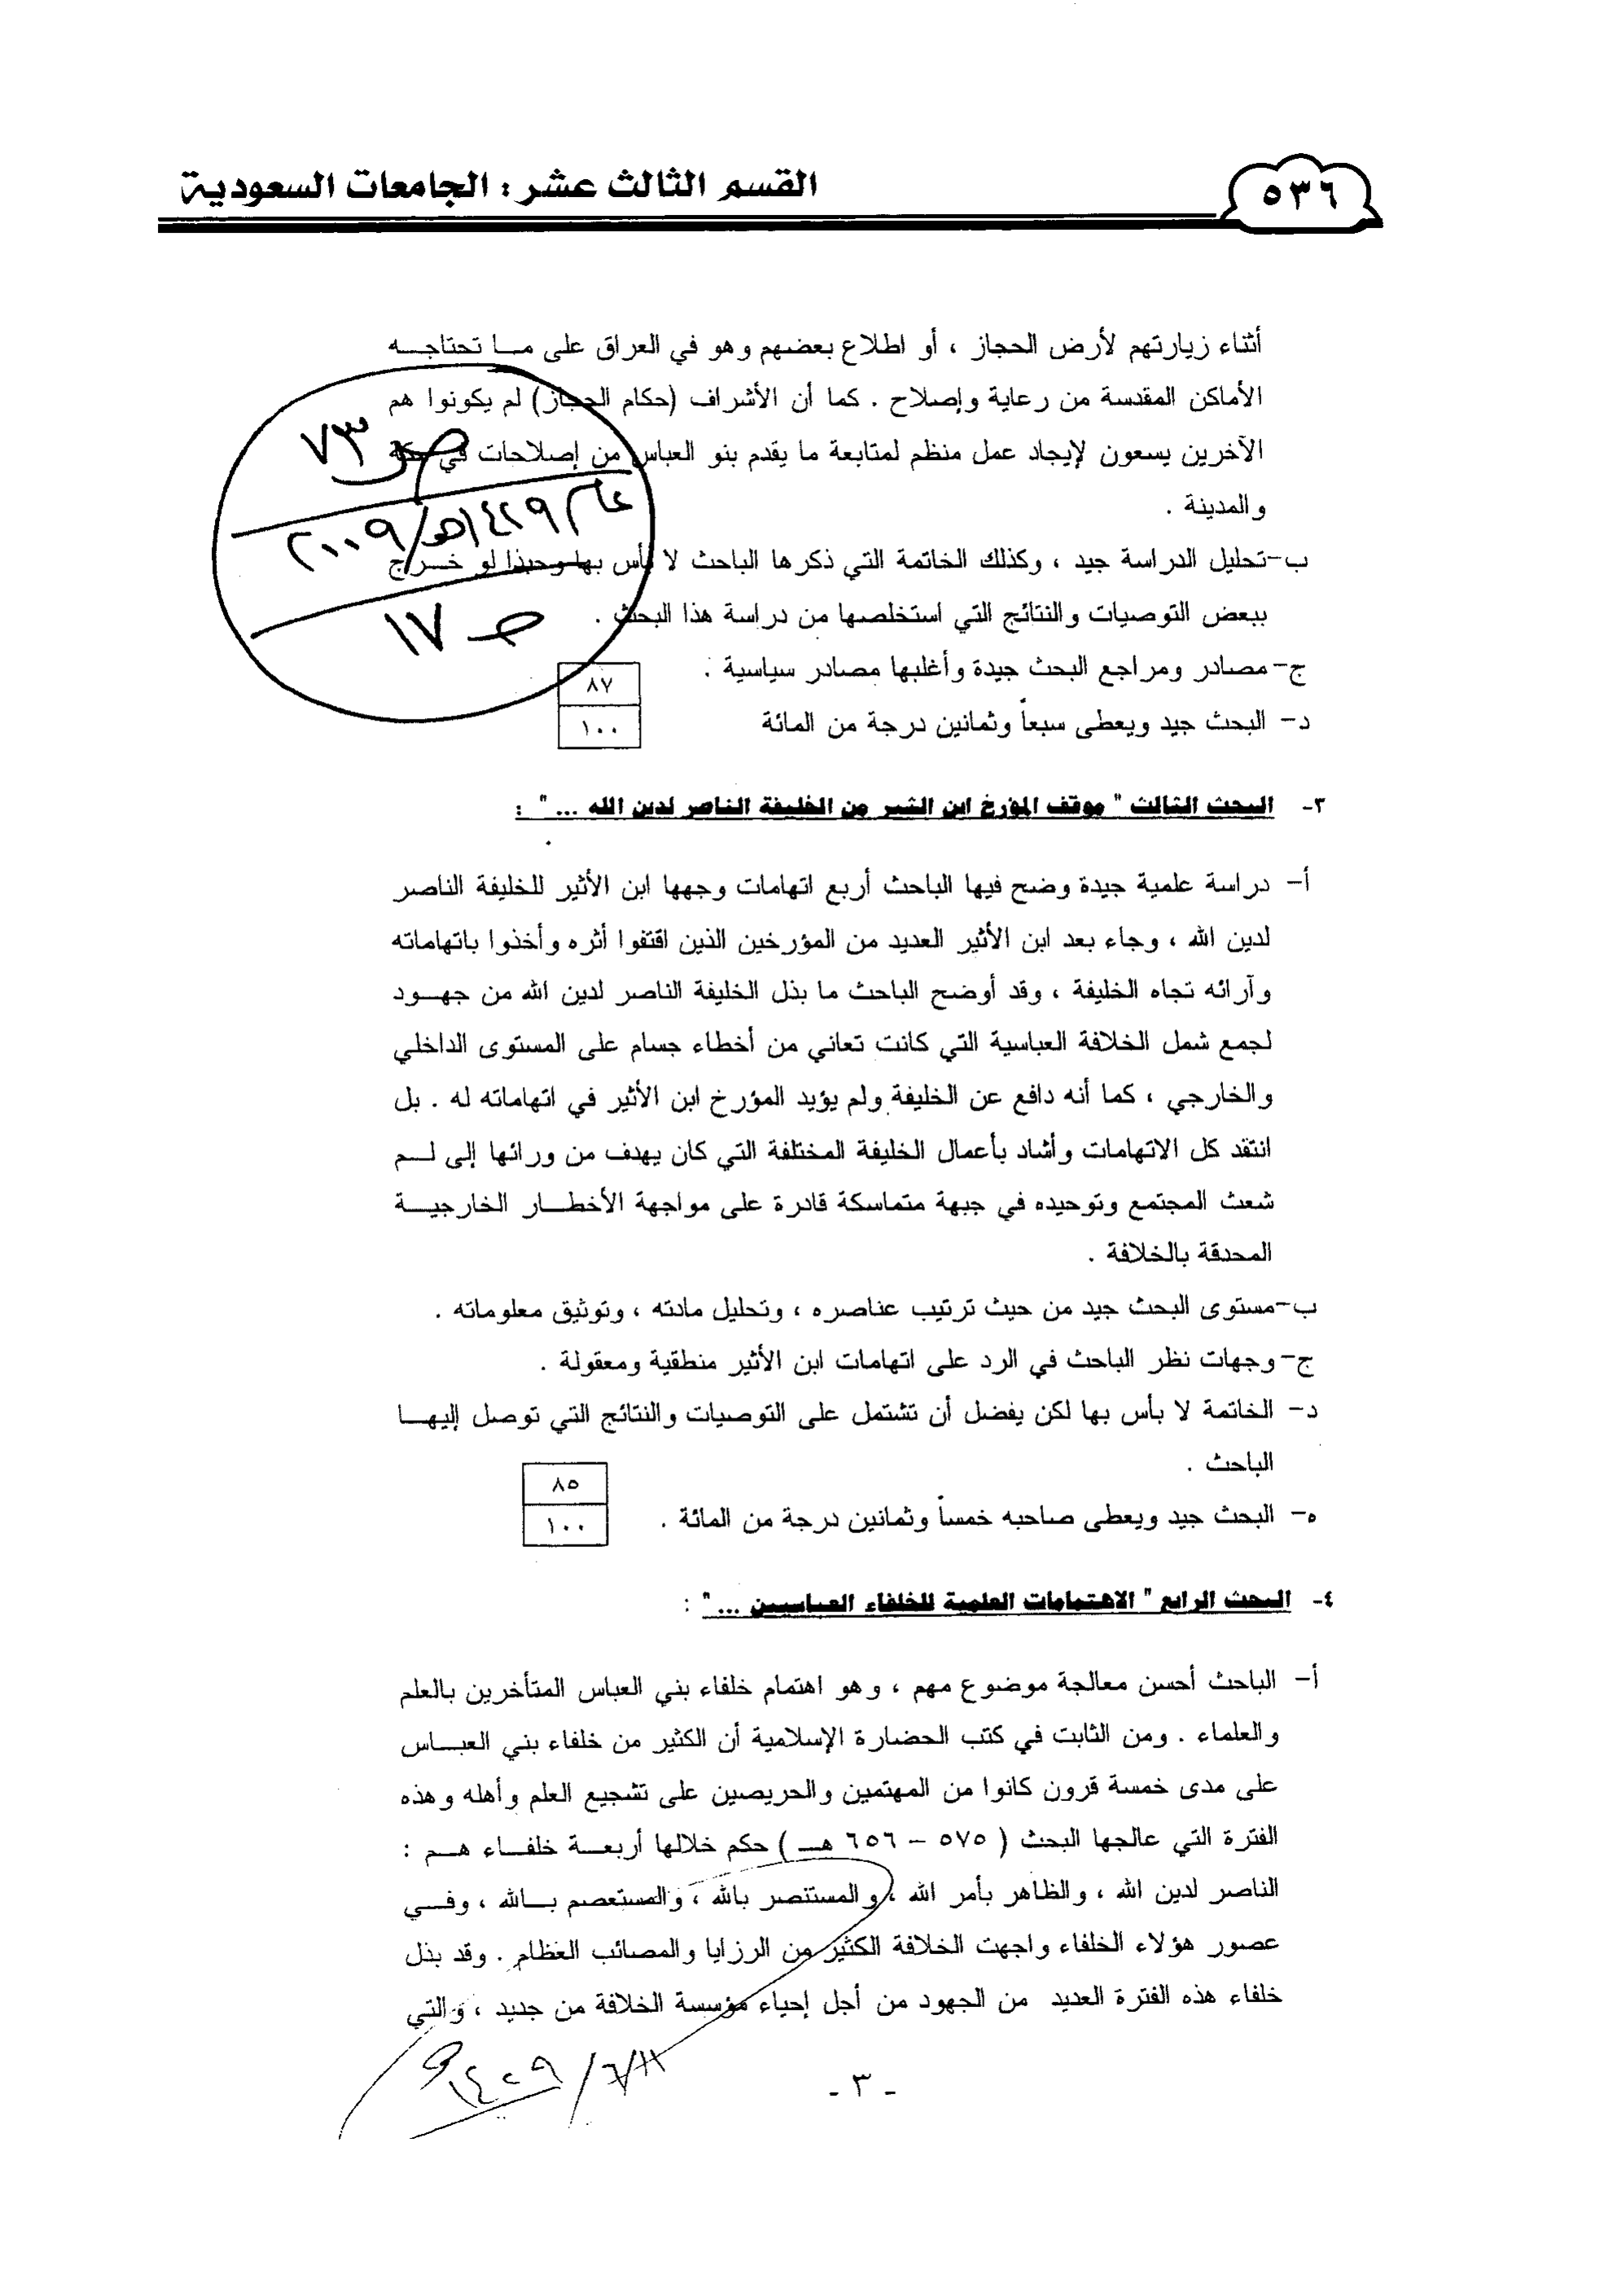 ٥٣٦
القسم الثالث عشر : الجامعات السعودية
أثناء زيارتهم لأرض الحجاز ، أو اطلاع بعضهم وهو في العراق على مـا تحتاجـه
الأماكن المقدسة من رعاية وإصلاح . كما أن الأشراف (حكام الحجاز) لم يكونوا هم
الآخرين يسعون لإيجاد عمل منظم لمتابعة ما يقدم بنو العباس من إصلاحات في مكة
والمدينة .
ص ٧٣
عام ١٤٢٩هـ/٢٠٠٩
ص ١٧
ب- تحليل الدراسة جيد ، وكذلك الخاتمة التي ذكرها الباحث لا بأس بها وحبذا لو خـرج
ببعض التوصيات والنتائج التي استخلصها من دراسة هذا البحث .
ج- مصادر ومراجع البحث جيدة وأغلبها مصادر سياسية .
د- البحث جيد ويعطى سبعاً وثمانين درجة من المائة
٨٧
١٠٠
٣- البحث الثالث " موقف المؤرخ ابن الثير من الخليفة الناصر لدين الله ... " :
أ- دراسة علمية جيدة وضح فيها الباحث أربع اتهامات وجهها ابن الأثير للخليفة الناصر
لدين الله ، وجاء بعد ابن الأثير العديد من المؤرخين الذين اقتفوا أثره وأخذوا باتهاماته
وآرائه تجاه الخليفة ، وقد أوضح الباحث ما بذل الخليفة الناصر لدين الله من جهـود
لجمع شمل الخلافة العباسية التي كانت تعاني من أخطاء جسام على المستوى الداخلي
والخارجي ، كما أنه دافع عن الخليفة ولم يؤيد المؤرخ ابن الأثير في اتهاماته له . بل
انتقد كل الاتهامات وأشاد بأعمال الخليفة المختلفة التي كان يهدف من ورائها إلى لـم
شعث المجتمع وتوحيده في جبهة متماسكة قادرة على مواجهة الأخطـار الخارجيـة
المحدقة بالخلافة .
ب- مستوى البحث جيد من حيث ترتيب عناصره ، وتحليل مادته ، وتوثيق معلوماته .
ج- وجهات نظر الباحث في الرد على اتهامات ابن الأثير منطقية ومعقولة .
د- الخاتمة لا بأس بها لكن يفضل أن تشتمل على التوصيات والنتائج التي توصل إليهـا
الباحث .
ه- البحث جيد ويعطى صاحبه خمساً وثمانين درجة من المائة .
٨٥
١٠٠
٤- البحث الرابع " الاهتمامات العلمية للخلفاء العباسيين ... " :
أ- الباحث أحسن معالجة موضوع مهم ، وهو اهتمام خلفاء بني العباس المتأخرين بالعلم
والعلماء . ومن الثابت في كتب الحضارة الإسلامية أن الكثير من خلفاء بني العبـاس
على مدى خمسة قرون كانوا من المهتمين والحريصين على تشجيع العلم وأهله وهذه
الفترة التي عالجها البحث ( ٥٧٥ – ٦٥٦ هـ ) حكم خلالها أربعـة خلفـاء هـم :
الناصر لدين الله ، والظاهر بأمر الله ، والمستنصر بالله ، والمستعصم بـالله ، وفـي
عصور هؤلاء الخلفاء واجهت الخلافة الكثير من الرزايا والمصائب العظام . وقد بذل
خلفاء هذه الفترة العديد من الجهود من أجل إحياء مؤسسة الخلافة من جديد ، والتي
- ٣ -